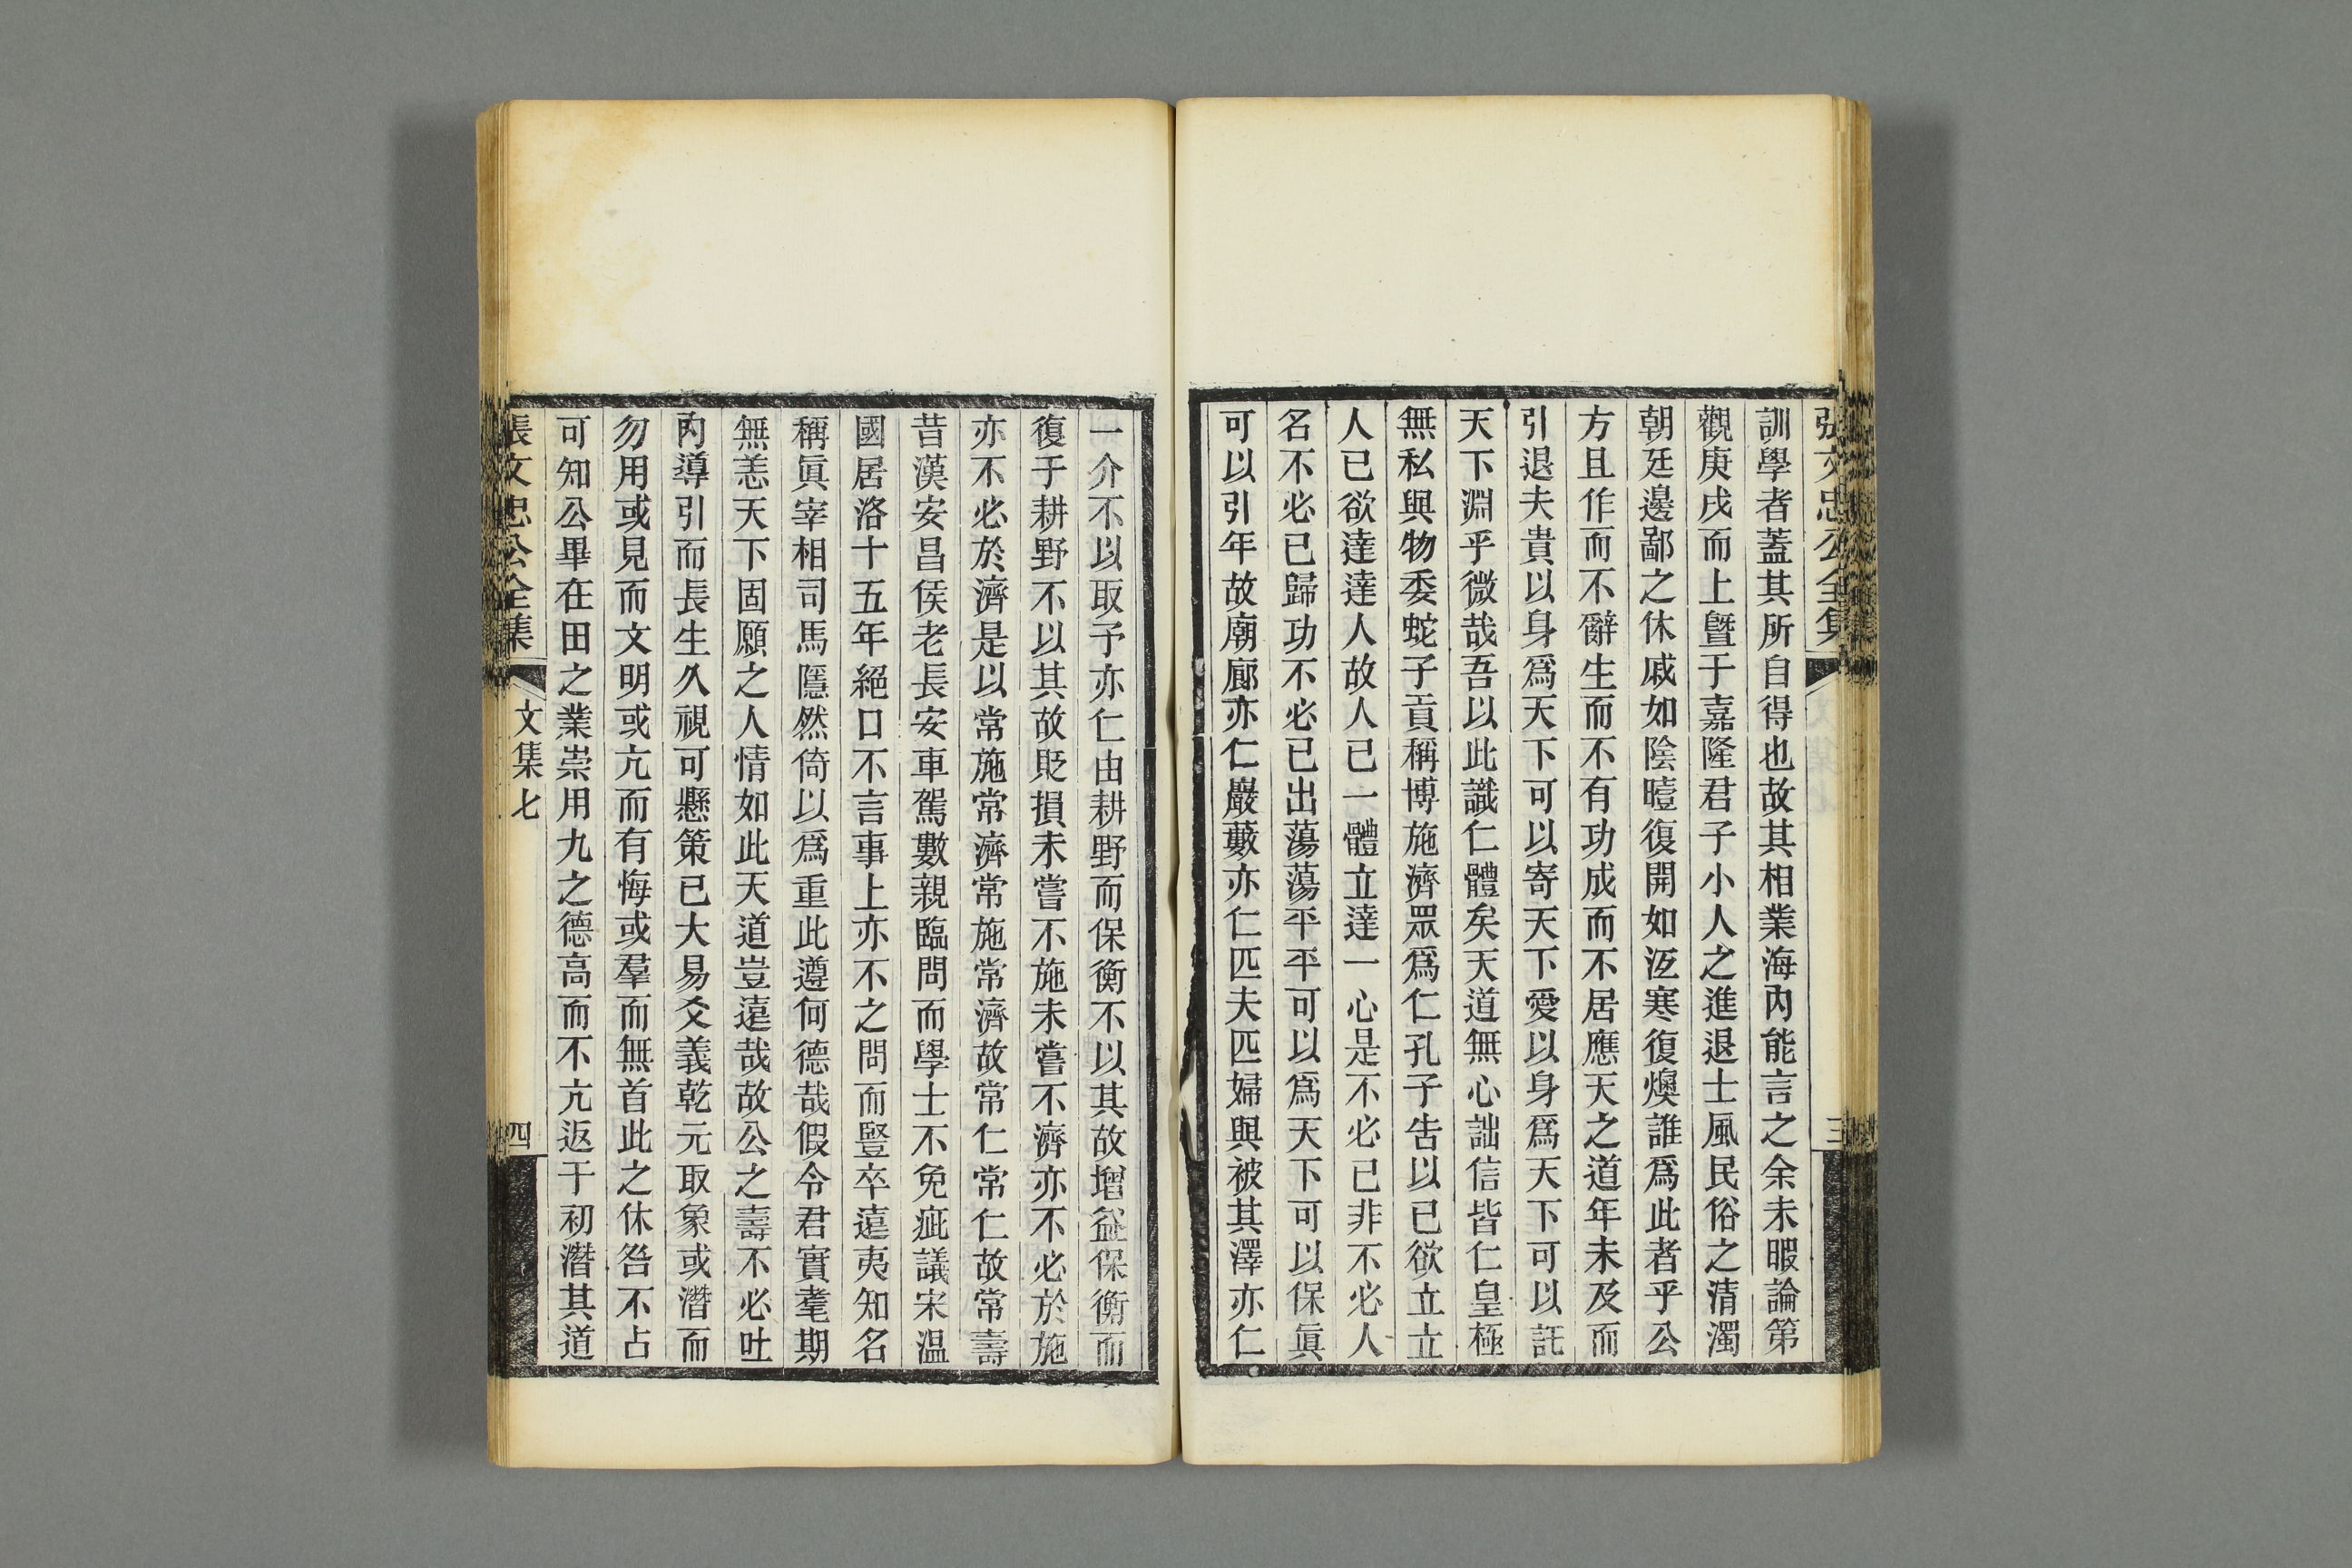 張文忠公全集
三
訓學者蓋其所自得也故其相業海內能言之余未暇論第
觀庚戌而上暨于嘉隆君子小人之進退士風民俗之清濁
朝廷邊鄙之休戚如陰曀復開如沍寒復燠誰爲此者乎公
方且作而不辭生而不有功成而不居應天之道年未及而
引退夫貴以身爲天下可以寄天下愛以身爲天下可以託
天下淵乎微哉吾以此識仁體矣天道無心詘信皆仁皇極
無私與物委蛇子貢稱博施濟眾爲仁孔子告以已欲立立
人已欲達達人故人已一體立達一心是不必已非不必人
名不必已歸功不必已出蕩蕩平平可以爲天下可以保眞
可以引年故廟廊亦仁巖藪亦仁匹夫匹婦與被其澤亦仁
一介不以取予亦仁由耕野而保衡不以其故增益保衡而
復于耕野不以其故貶損未嘗不施未嘗不濟亦不必於施
亦不必於濟是以常施常濟常施常濟故常仁常仁故常壽
昔漢安昌侯老長安車駕數親臨問而學士不免疵議宋温
國居洛十五年絕口不言事上亦不之問而豎卒遠夷知名
稱眞宰相司馬隱然倚以爲重此遵何德哉假令君實耄期
無恙天下固願之人情如此天道豈遠哉故公之壽不必吐
內導引而長生久視可懸策已大易爻義乾元取象或潛而
勿用或見而文明或亢而有悔或羣而無首此之休咎不占
可知公畢在田之業崇用九之德高而不亢返于初潛其道
張文忠公全集
文集七
四